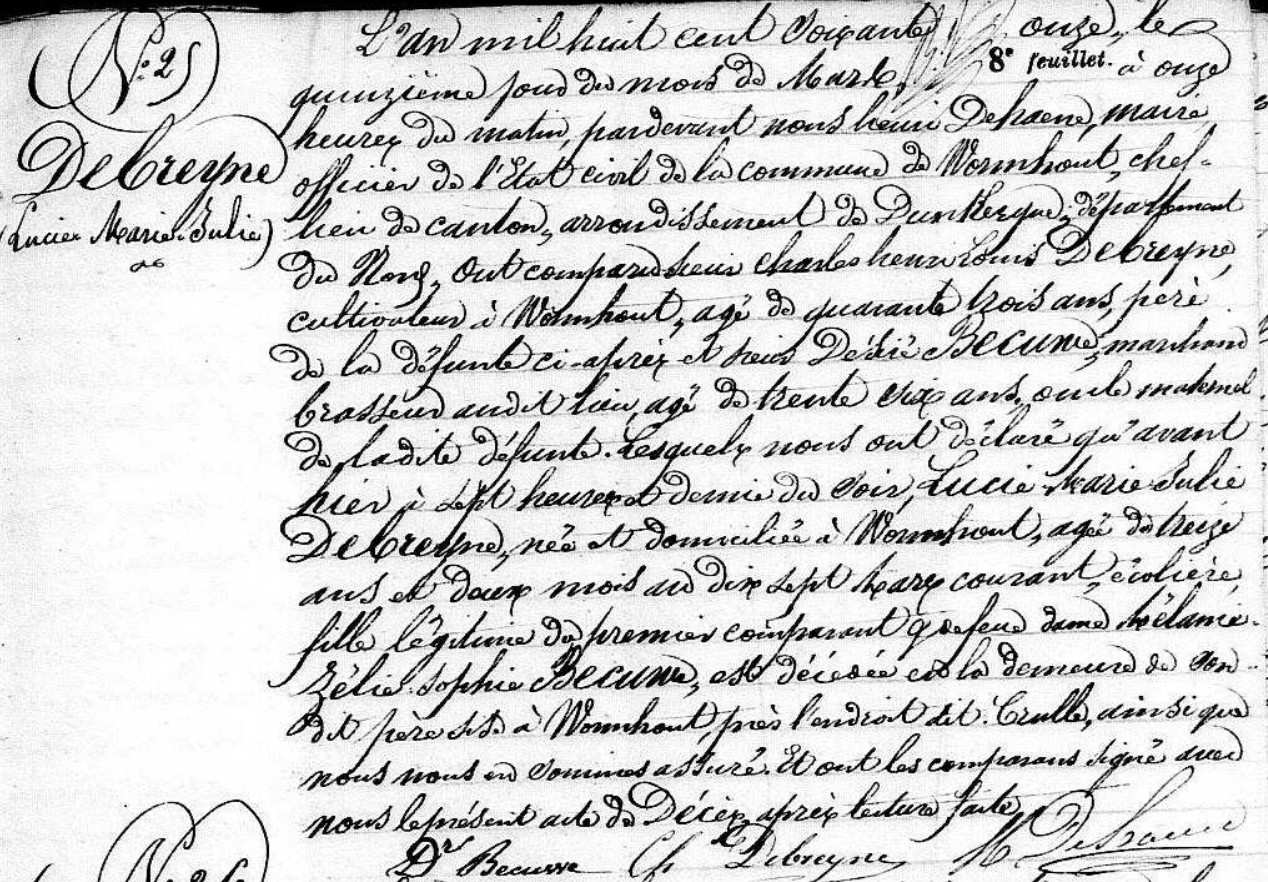 N° 25
Debreyne
(Lucie Marie Julie)
L'an mil huit cent soixante onze, le
8e feuillet.
quinzième jour du mois de Mars, à onze
heures du matin, pardevant nous henri Dehaene, maire
officier de l'Etat civil de la commune de Wormhout, chef-
lieu de canton, arrondissement de Dunkerque, département
du Nord, Ont comparu sieur Charles henri Louis Debreyne,
cultivateur à Wormhout, agé de quarante trois ans, père
de la défunte ci-après et sieur Désiré Becuwe, marchand
brasseur audit lieu, agé de trente six ans, oncle maternel
de ladite défunte. Lesquels nous ont déclaré qu'avant
hier à sept heures et demie du soir, Lucie Marie Julie
Debreyne, née et domiciliée à Wormhout, agée de treize
ans et deux mois au dix sept Mars courant, écolière,
fille légitime du premier comparant & de feue dame Mélanie
Zélie Sophie Becuwe, est décédée en la demeure de son
dit père sise à Wormhout, près l'endroit dit: Crulle, ainsi que
nous nous en sommes assuré. Et ont les comparans signé avec
nous le présent acte de Décès, après lecture faite,
Dré Becuwe Ch Debreyne H Dehaene